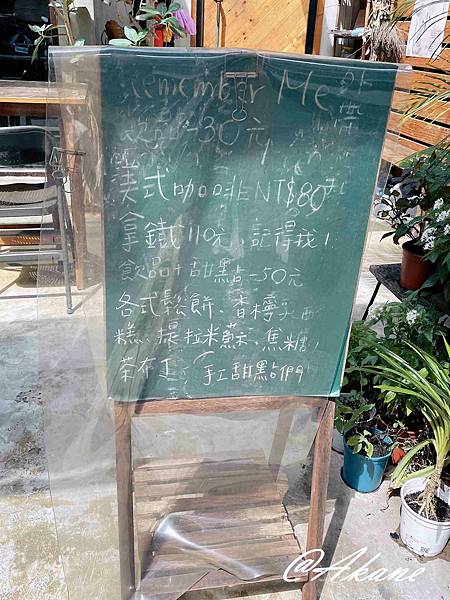 Remember Me
外帶
飲品-30元
美式咖啡NT$80元
拿鐵110元、記得我！
飲品+甜點-50元
各式鬆餅、香檸乳酪
糕、提拉米蘇、焦糖
茶布丁 手工甜點們
@Akane